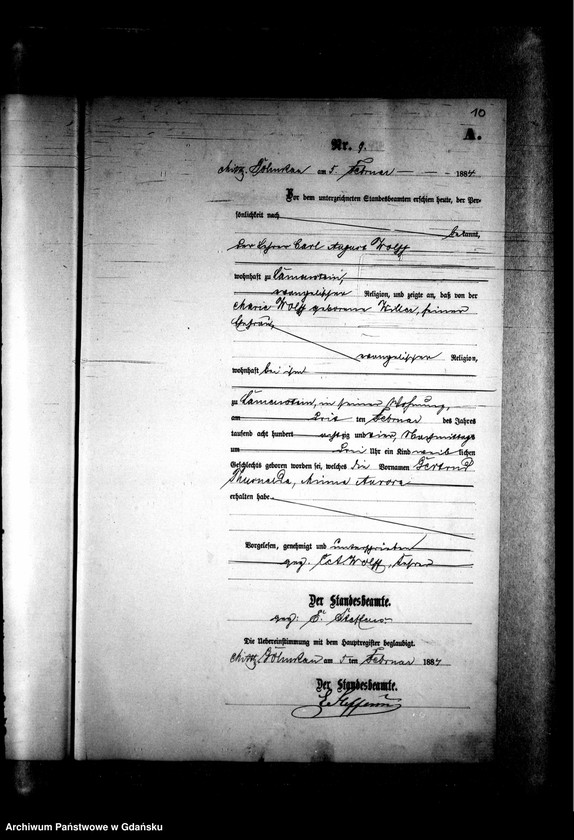 10
A.
Nr. 9.
am 5 Februar 1884
Vor dem unterzeichneten Standesbeamten erschien heute, der Per-
sönlichkeit nach
bekannt,
der Lehrer Carl August Wolff
wohnhaft zu Löwenstein,
evangelischer Religion, und zeigte an, daß von der
Marie Wolff geborene seiner
Ehefrau,
evangelischer Religion,
wohnhaft bei ihm
zu Löwenstein, in seiner Wohnung,
am drei ten Februar des Jahres
tausend acht hundert achtzig und vier, Nachmittags
um drei Uhr ein Kind weib lichen
Geschlechts geboren worden sei, welches die Vornamen Gertrud
Aurora
erhalten habe.
Vorgelesen, genehmigt und unterschrieben
gez. Wolff, Lehrer
Der Standesbeamte.
gez.
Die Uebereinstimmung mit dem Hauptregister beglaubigt.
am 5 ten Februar 1884
Der Standesbeamte.
Archiwum Państwowe w Gdańsku